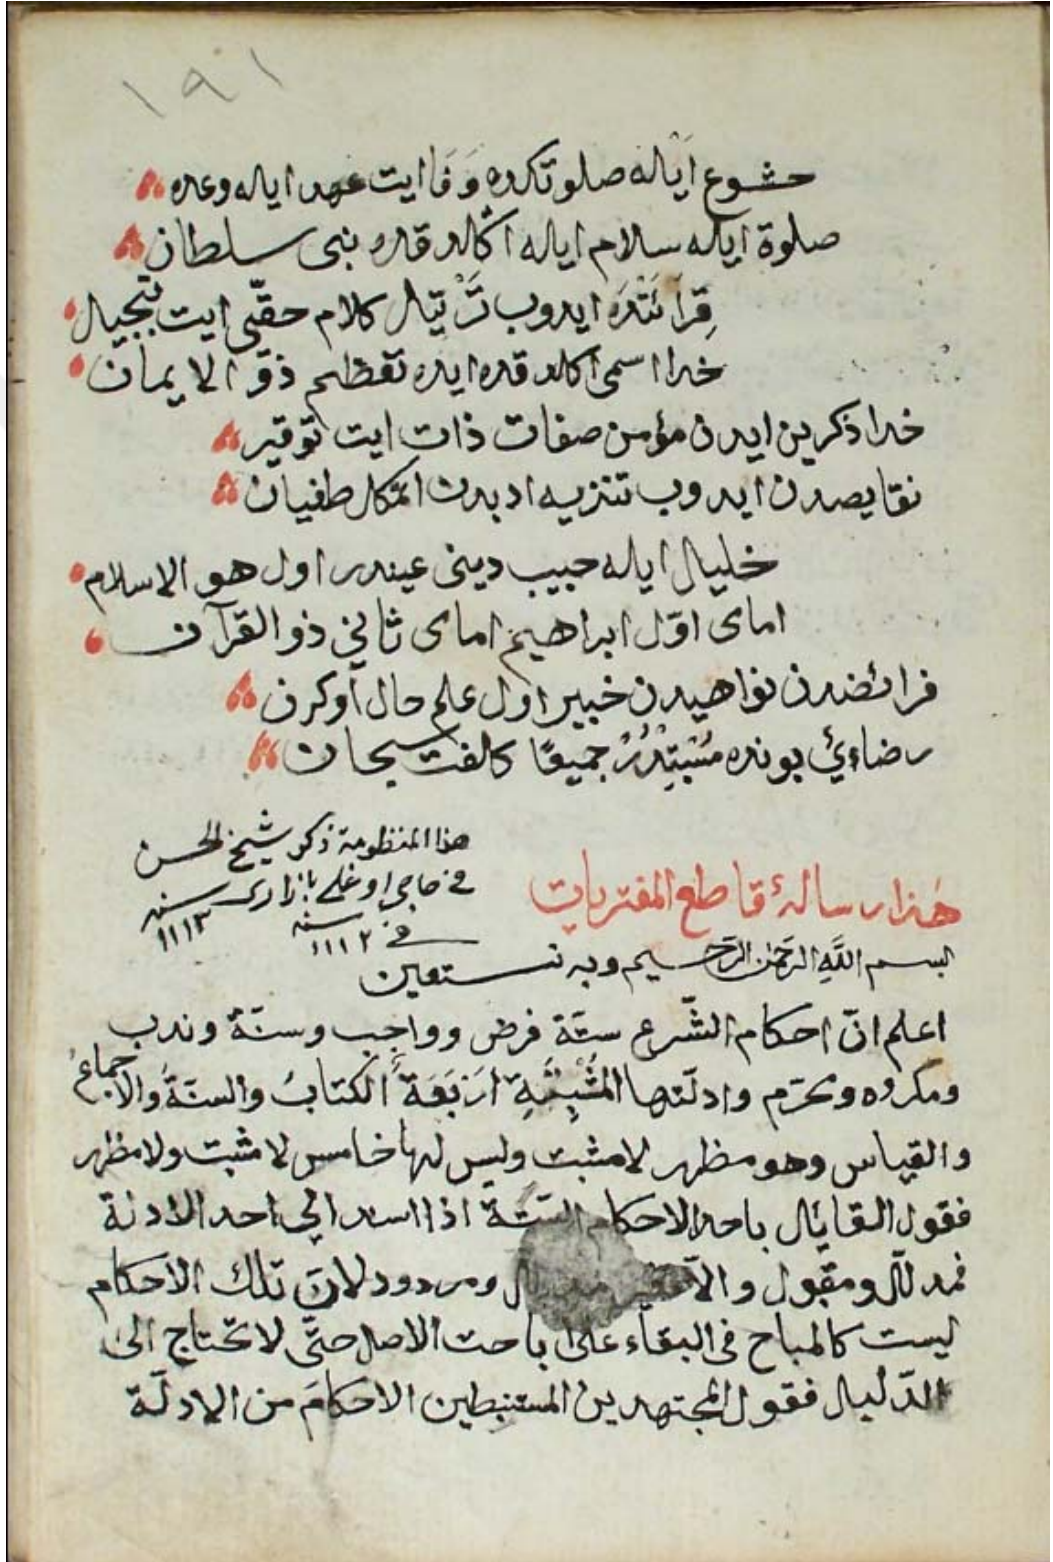 ١٩١
خشوع ايله صلوتكده وَفَا ايت عهد ايله وعده
صلوة ايله سلام ايله اكلد قده نبى سلطان
قِرَائَتْدَه ايدوب تَرْتيل كلام حقّى ايت تبجيل
خدا اسمى اكلد قده ايده تعظيم ذو الايمان
خدا ذكرين ايدن مؤمن صفات ذات ايت توقير
نقايصدن ايدوب تنزيه ادبدن اتمكل طغيان
خليل ايله حبيب دينى عيندر اول هو الاسلام
اماى اوّل ابراهيم اماى ثاني ذو القرآن
فرائضدن نواهيدن خبير اول علم حال اوكرن
رضاءئ بونده مُسْتَتِرْدُرْ جميعًا كالفت سبحان
هذا المنظومة ذكر شيخ الحسن
فى حاجى اوغلى بازارى سنه ١١١٣
فى سنه ١١١٢
هٰذا رسالۀ قاطع المفتريات
بسم اللّٰه الرَحمٰن الرَحيم وبه نستعين
اعلم انّ احكام الشّرع ستّة فرض وواجب وسنّة وندب
ومكروه ومحرّم وادلّتها المُثْبِتَةِ اَرْبَعَةٌ الكتابُ والسنّةُ والاجماعُ
والقياس وهو مظهر لا مثبت وليس لها خامس لا مثبت ولا مظهر
فقول القايل باحد الاحكام الستّة اذا اسند الى احد الادلة
فمدلّل ومقبول والّا ومردود لانّ تلك الاحكام
ليست كالمباح فى البقاء على اباحت الاصل حتّى لا تحتاج الى
الدّليل فقول المجتهدين المستنبطين الاحكامَ من الادلّة